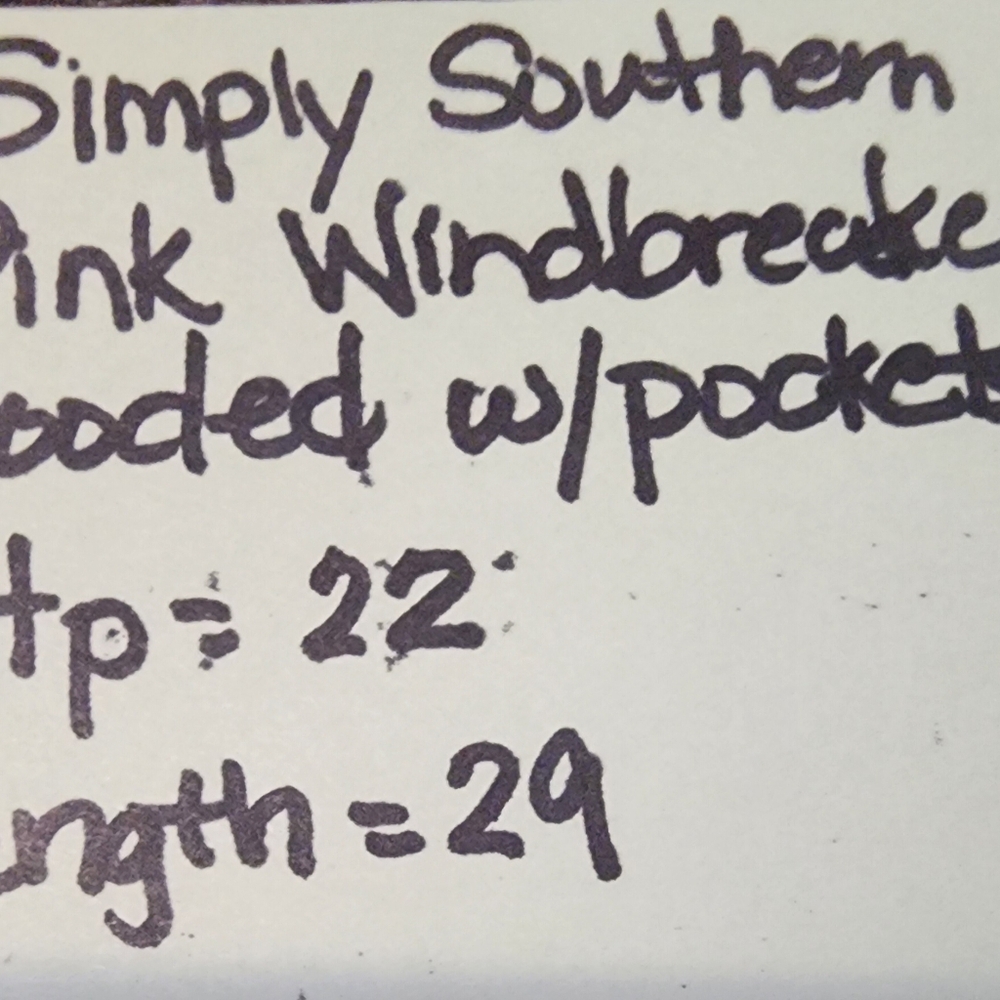 Simply Southern
Pink Windbreake
ooded w/pockets
tp= 22
ngth = 29